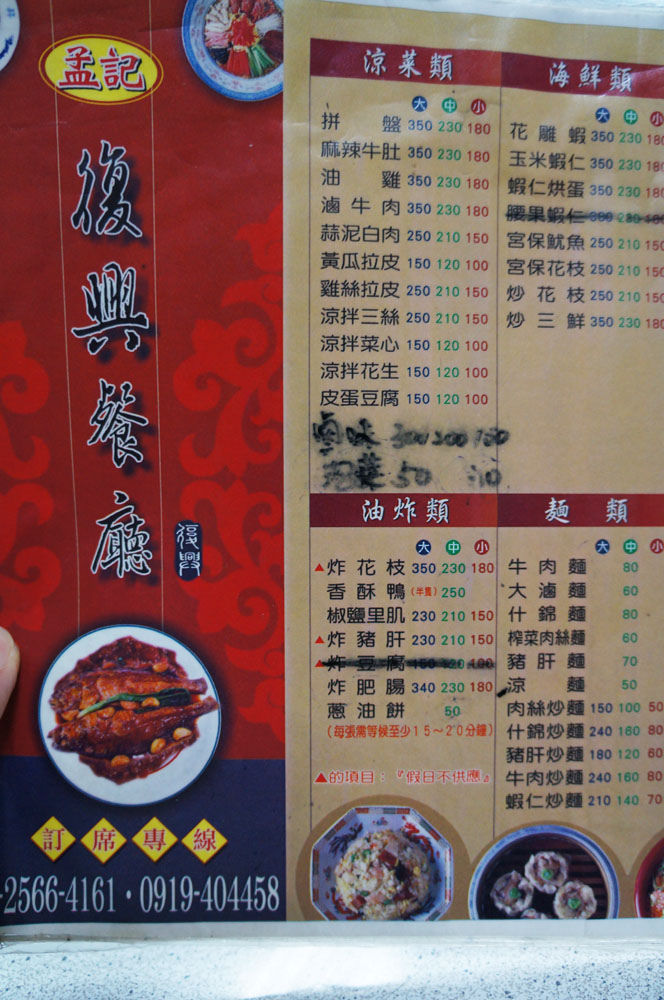 孟記
復興餐廳
復興
訂席專線
-2566-4161・0919-404458
涼菜類
大 中 小
拼盤 350 230 180
麻辣牛肚 350 230 180
油雞 350 230 180
滷牛肉 350 230 180
蒜泥白肉 250 210 150
黃瓜拉皮 150 120 100
雞絲拉皮 250 210 150
涼拌三絲 250 210 150
涼拌菜心 150 120 100
涼拌花生 150 120 100
皮蛋豆腐 150 120 100
滷味 300 200 150
泡菜 50
海鮮類
大 中 小
花雕蝦 350 230 180
玉米蝦仁 350 230 180
蝦仁烘蛋 350 230 180
腰果蝦仁
宮保魷魚 250 210 150
宮保花枝 250 210 150
炒花枝 250 210 150
炒三鮮 350 230 180
油炸類
大 中 小
▲炸花枝 350 230 180
香酥鴨(半隻) 250
椒鹽里肌 230 210 150
▲炸豬肝 230 210 150
▲炸豆腐 150 120 100
炸肥腸 340 230 180
蔥油餅 50
(每張需等候至少15~20分鐘)
▲的項目:『假日不供應』
麵類
大 中 小
牛肉麵 80
大滷麵 60
什錦麵 80
榨菜肉絲麵 60
豬肝麵 70
涼麵 50
肉絲炒麵 150 100 50
什錦炒麵 240 160 80
豬肝炒麵 180 120 60
牛肉炒麵 240 160 80
蝦仁炒麵 210 140 70